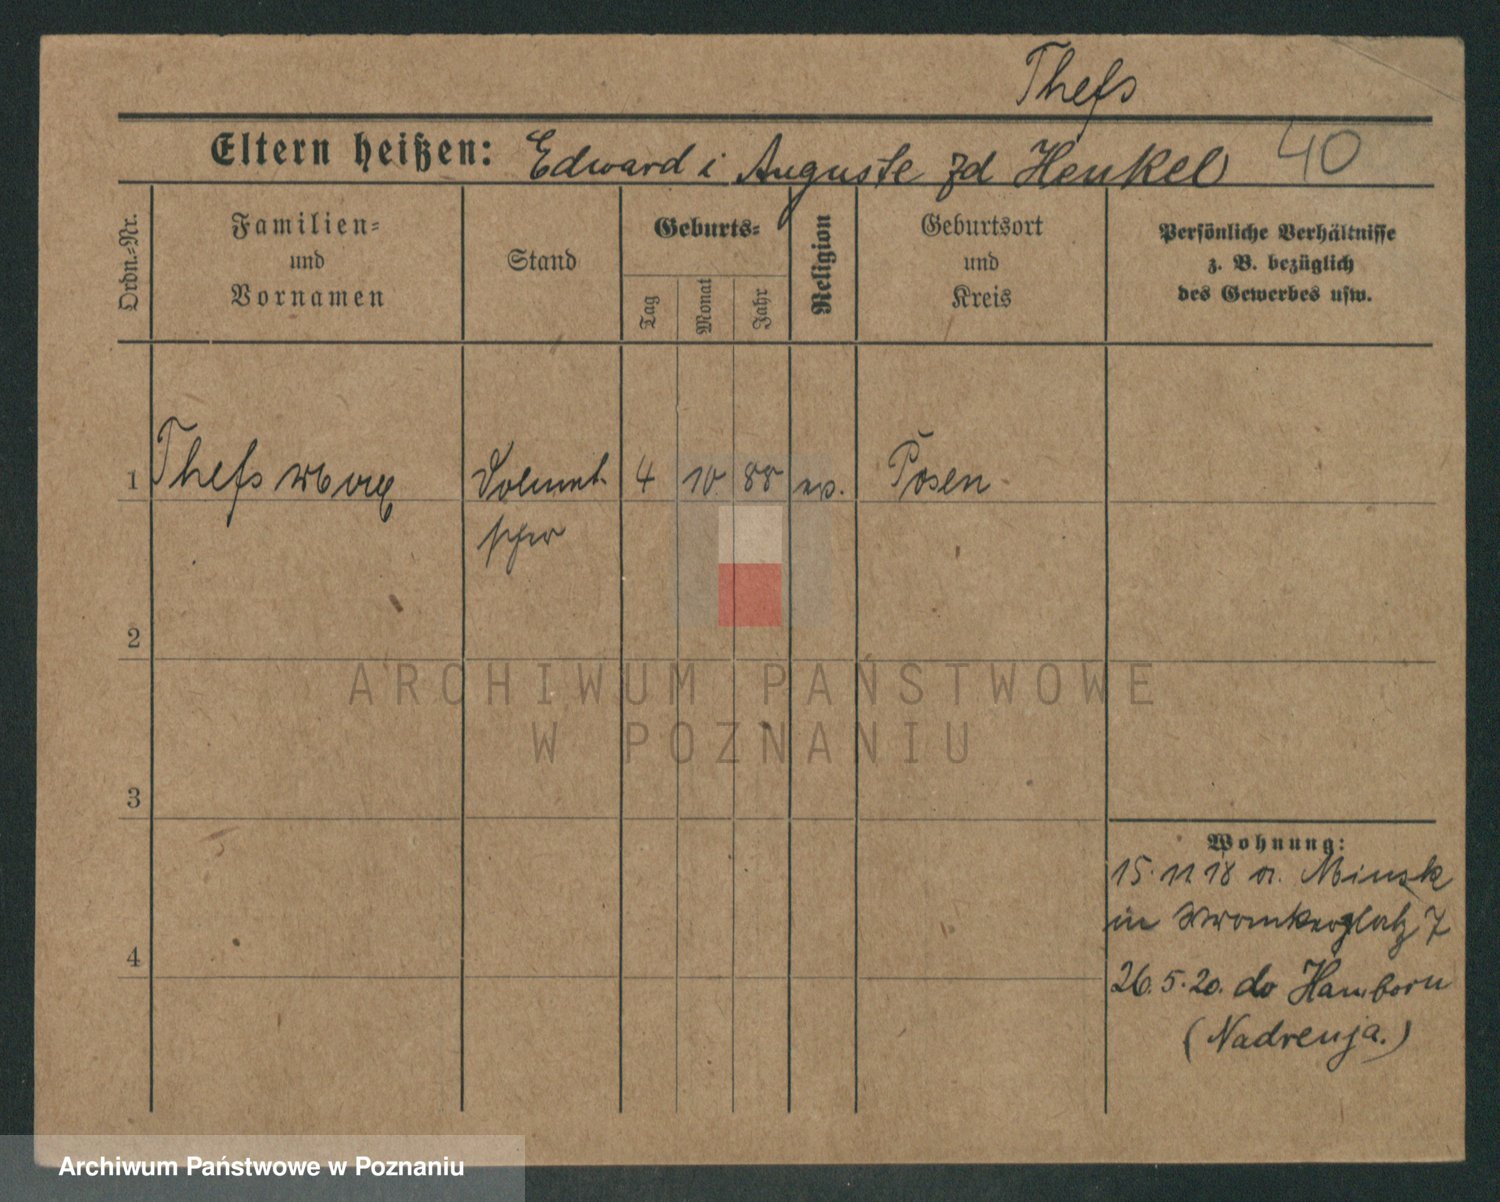 Thefs
Eltern heißen: Edward i Auguste zd Henkel 40
Ordn.-Nr.
Familien=
und
Vornamen
Stand
Geburts=
Tag
Monat
Jahr
Religion
Geburtsort
und
Kreis
Persönliche Verhältnisse
z. B. bezüglich
des Gewerbes usw.
1 Thefs Max Dolmet- 4 10. 88 ev. Posen
scher
2
ARCHIWUM PAŃSTWOWE
W POZNANIU
3
Wohnung:
15.11.18 a. Minsk
in Wronkerplatz 7
4
26.5.20. do Hamborn
(Nadrenja.)
Archiwum Państwowe w Poznaniu